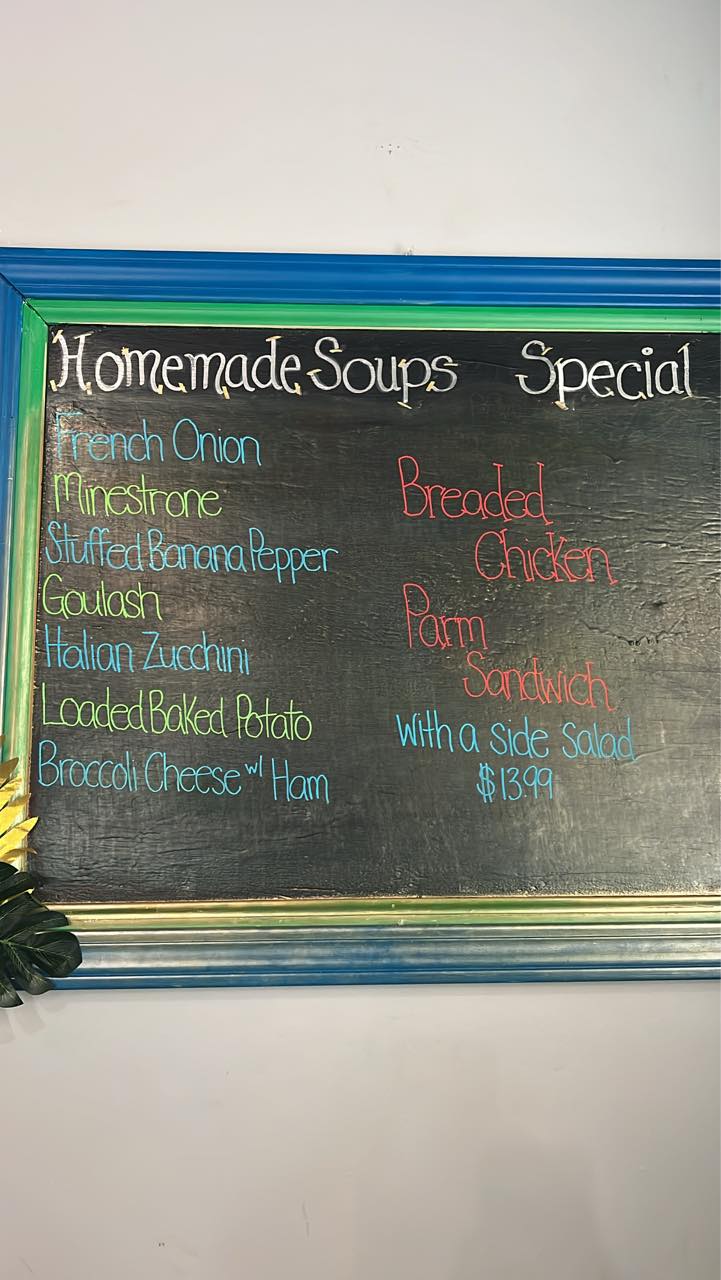 Homemade Soups
French Onion
Minestrone
Stuffed Banana Pepper
Goulash
Italian Zucchini
Loaded Baked Potato
Broccoli Cheese w/ Ham
Special
Breaded
Chicken
Parm
Sandwich
With a side Salad
$13.99